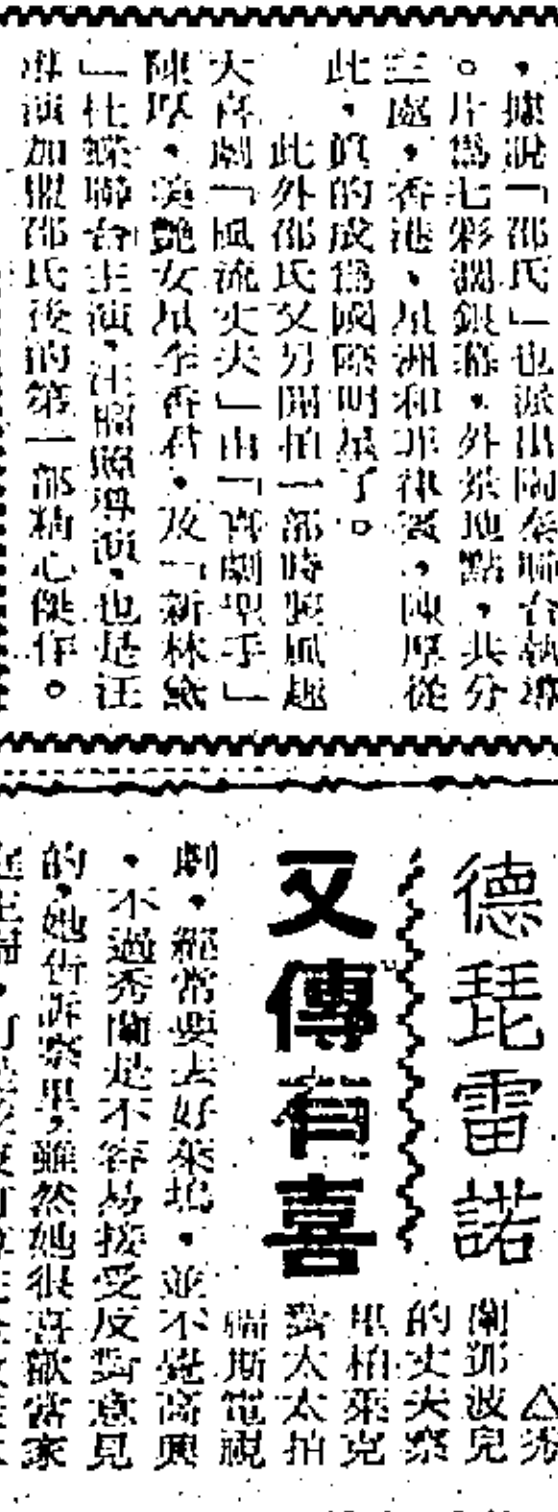 ，據說「邵氏」也派出陶秦師台執導
。片為七彩濶銀幕，外景地點，共分
三處，香港、星洲和菲律賓，陳厚從
此，真的成為國際明星了。
此外邵氏又另開拍一部時裝風趣
大喜劇「風流丈夫」由「喜劇聖手」
陳厚，美艷女星李香君，及「新林黛
」杜蝶聯合主演，汪榴照導演，也是汪
導演加盟邵氏後的第一部精心傑作。
德琵雷諾
又傳有喜
△秀
蘭鄧波兒
的丈夫察
里柏萊克
對太太拍
福斯電視
劇，經常要去好萊塢，並不覺高興
，不過秀蘭是不容易接受反對意見
的，她告訴察里，雖然她很喜歡當家